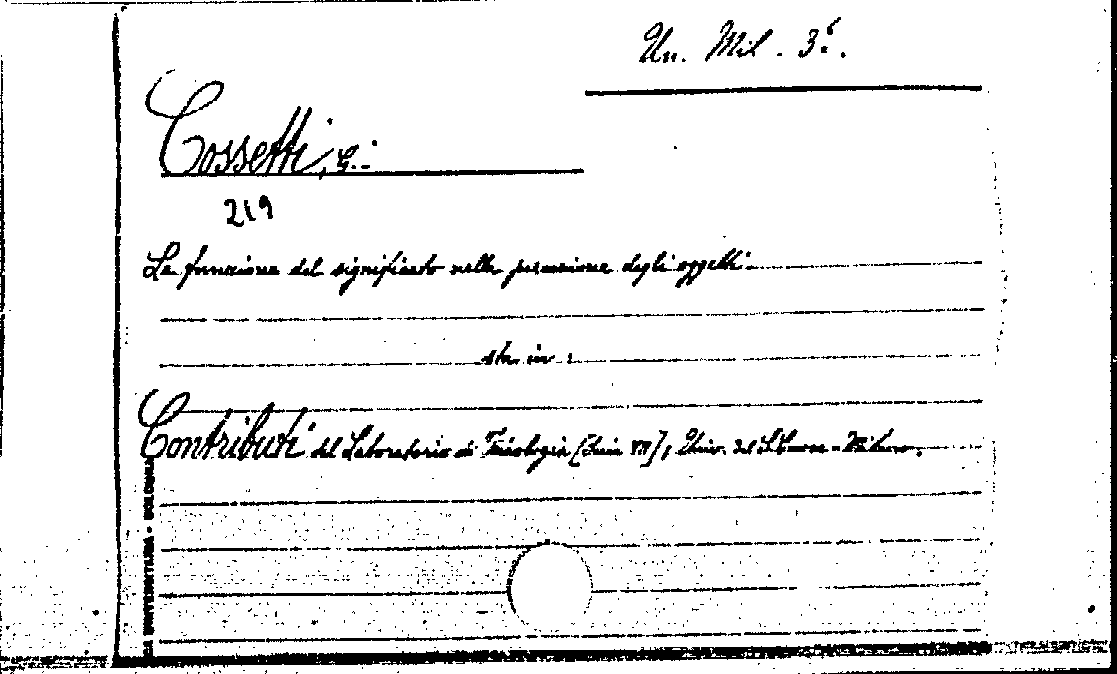 Un. Mil. 3⁶.
Cossetti, G.
219
La funzione del significato nella percezione degli oggetti.
sta in:
Contributi del Laboratorio di Psicologia (Serie VII), Univ. del S. Cuore - Milano.
UNIVERSITARIA - BOLOGNA